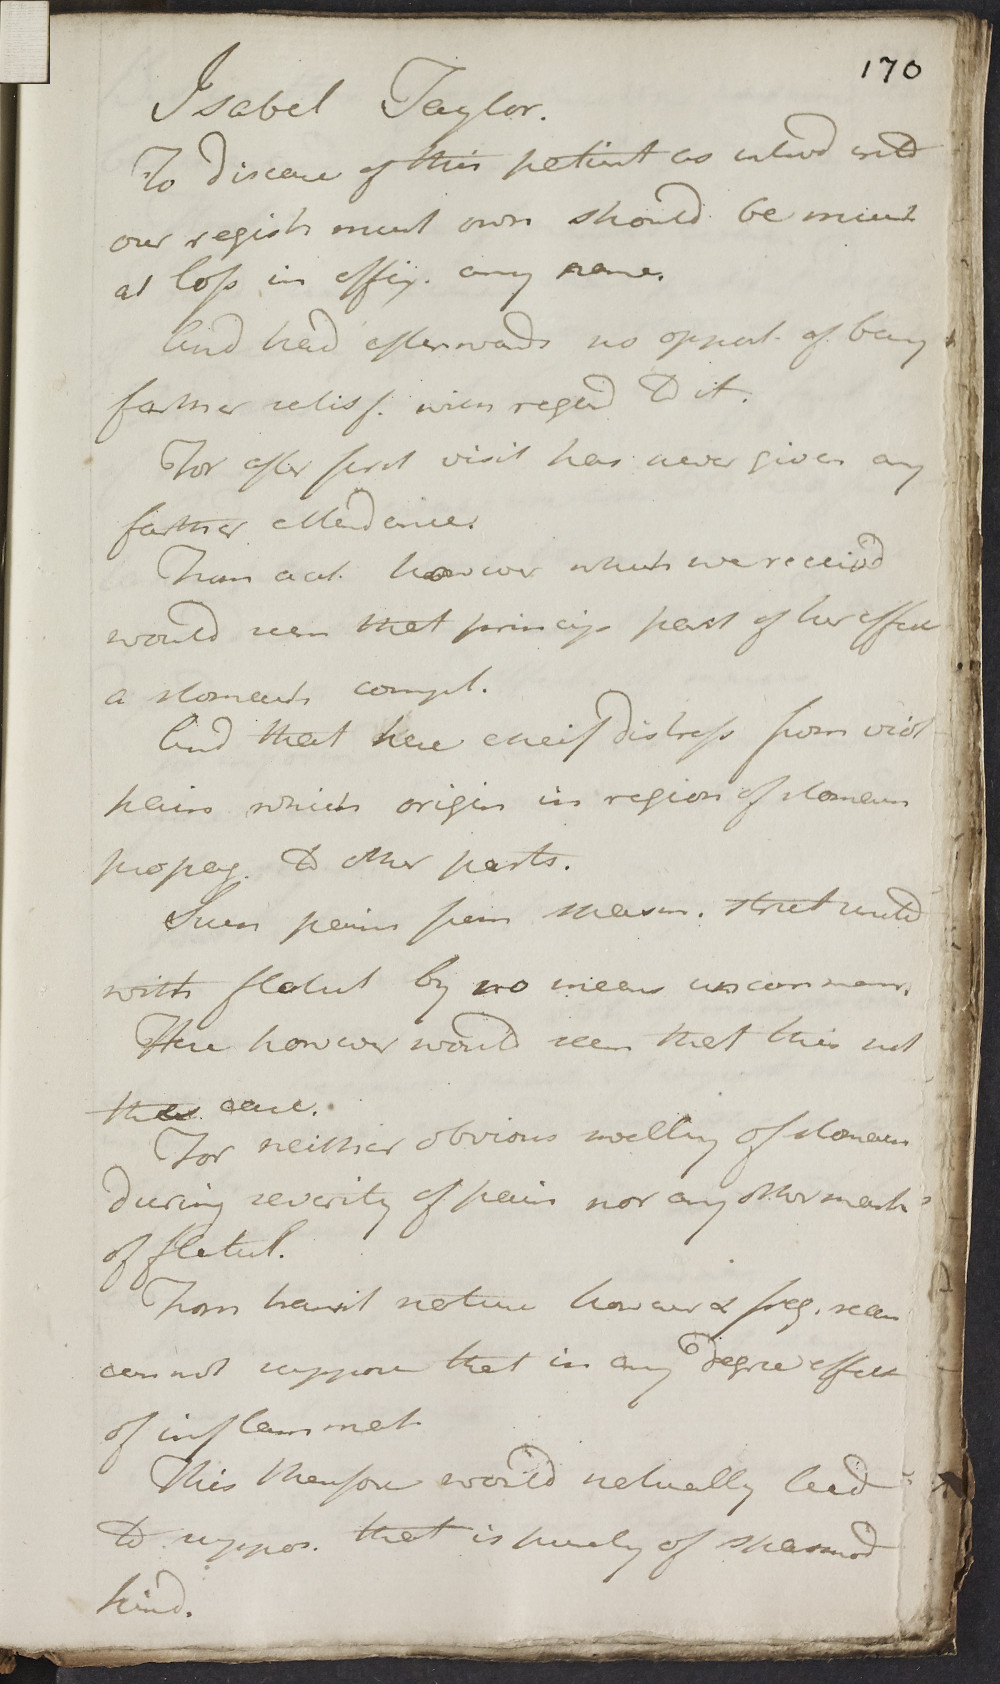 170
Isabel Taylor.
To Disease of this patient as enterd into
our regist must own should be much
at loss in affix. any name.
And had afterwards no opport. of being
farther satisf. with regard to it.
For after first visit has never given any
farther attendance.
From acct. however which we receiv'd
would seem that princip part of her affect
a stomach compl.
And that her cheif Distress from viol
pains which origin in region of stomach
propag. to other parts.
Such pains from spasm. united
with flatul by no means uncommon.
Here however would seem that this not
the case.
For neither obvious swelling of stomach
During severity of pain nor any other marks
of flatul.
From transit nature however & freq. recur
can not suppose that in any Degree effect
of inflammat
This therefore would natually lead
to suppos. that is purely of spasmod
kind.